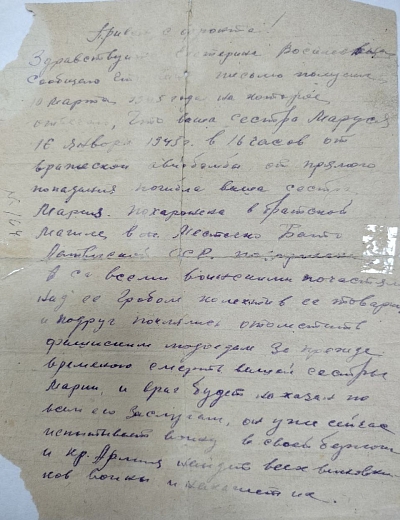 Привет с фронта!
Здравствуйте Екатерина Васильевна
Сообщаю письмо получил
марта 1945 года на которое
отвечаю, Что ваша сестра Маруся
16 января 1945 г. в 16 часов от
вражеской авиабомбы от прямого
попадания погибла ваша сестра
Мария. похоронена в братской
Могиле в Местечко
Латвийской ССР.
со всеми воинскими почестями
над ее гробом коллектив ее товарищ
и подруг поклялись отомстить
фашисским людоедам За
временою смерть вашей сестры
Марии, и враг будет наказан по
всем его Заслугам, он уже сейчас
испытывает войну в своей берлоге
и кр. Армия найдет всех виновни
ков войны и накажет их.